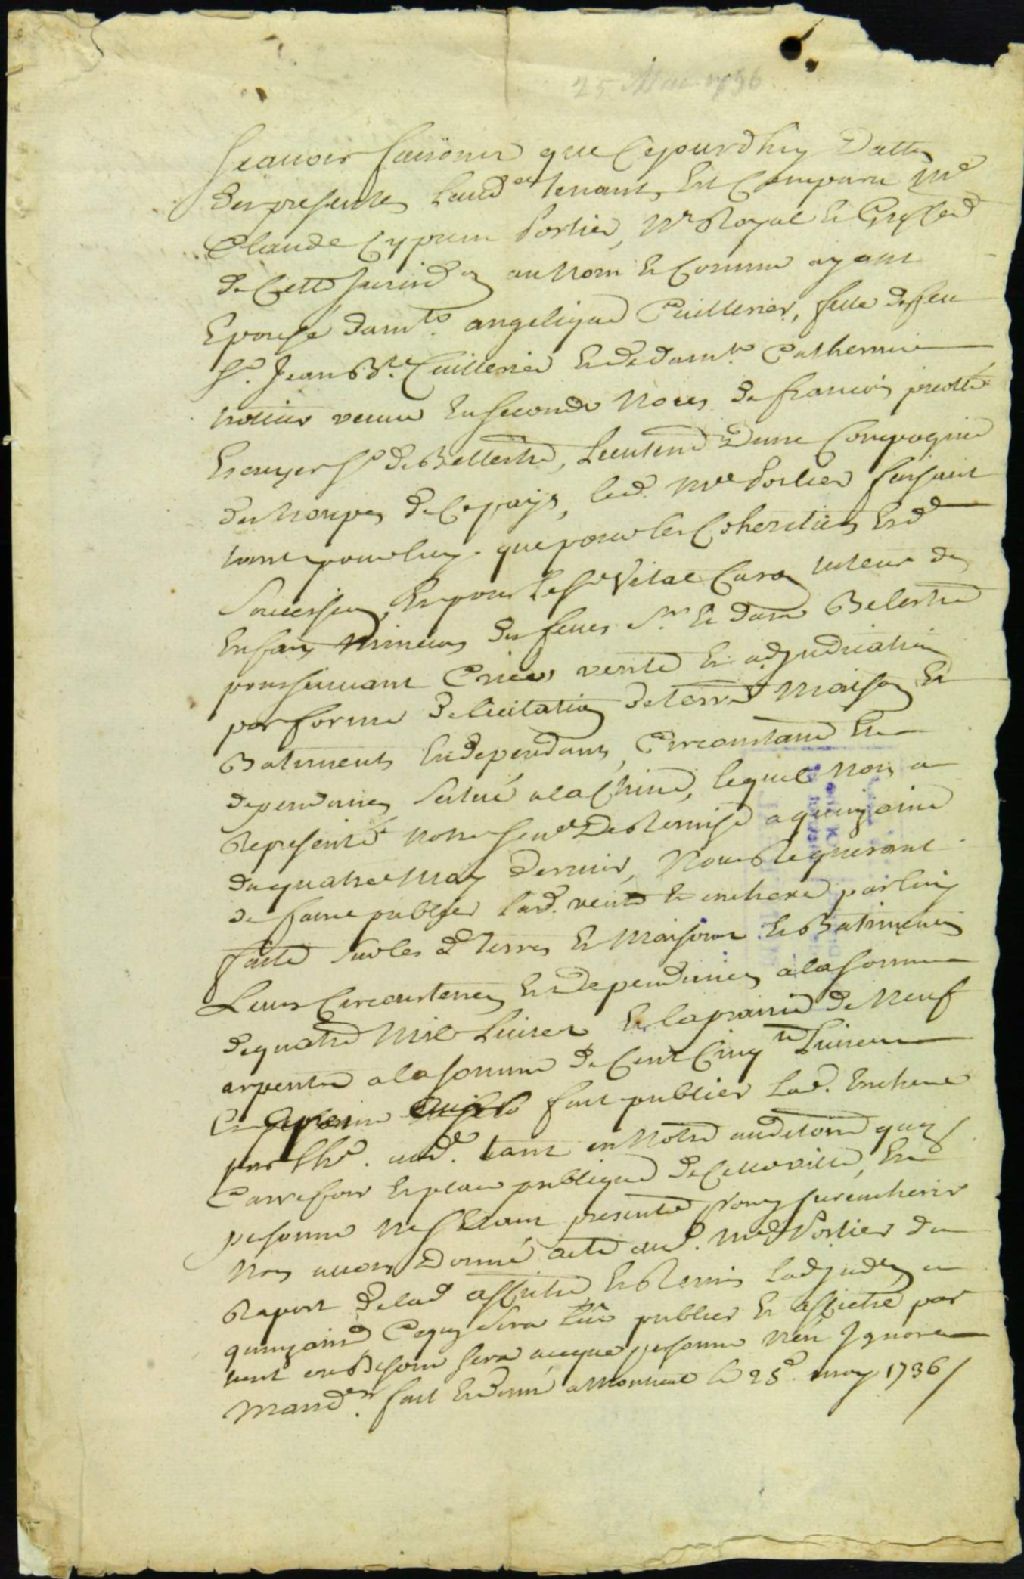 25 Mai 1736
Scavoir faisons que Cejourdhuy Datte
des presentes Laud.ce tenant, Est Comparu Me
Claude Cyprien Porlier, Nre Royal et Greffier
de Cette Jurisd.on au Nom et Comme ayant
Epousé dam.lle angelique Cuillerier, fille de feu
Sr. Jean Bte. Cuillerier et de dam.lle Catherine
veuve En seconde Noces de francois picotté
Ecuyer Sr. de Bellestre, Lieutenant Dune Compagnie
des troupes de Ce pays, led. Me Porlier faisant
tant pour luy que pour les Coheritiers Esd.
Succession, Et pour le Sr Vital Caron tuteur des
Enfans Mineurs des feues Sr. et dame Belestre
poursuivant Criées vente et adjudication
par forme de licitation de terre Maison et
Batiments En dependants, Circonstance Et
dependances Scitué a la Chine, lequel Nous a
Representé Notre Sen.ce De Remise a quinzaine
du quatre May Dernier, Nous Requerant
de faire publier lad. vente et enchere par luy
faite sur les d. terres et Maisons et Batiments
Leurs Circonstances Et dependances a la somme
de quatre Mil Livres Et la prairie de Neuf
arpents a la somme de Cent Cinq.te Livres
fait publier lad. Enchere
par aud. tant en Notre auditoire que
Carrefour et place publique de Cette ville, Et
personne Ne s'Etant presenté pour surencherir
Nous avons Donné acte aud. Me Porlier du
Raport de lad affiche et Remis Ladjud.on a
quinzaine Ce qui sera lue publiée et affiché par
tout ou Besoin sera a ce que personne N'en Ignore
Mand.ns fait Et donné a Montreal le 25e. may 1736 /